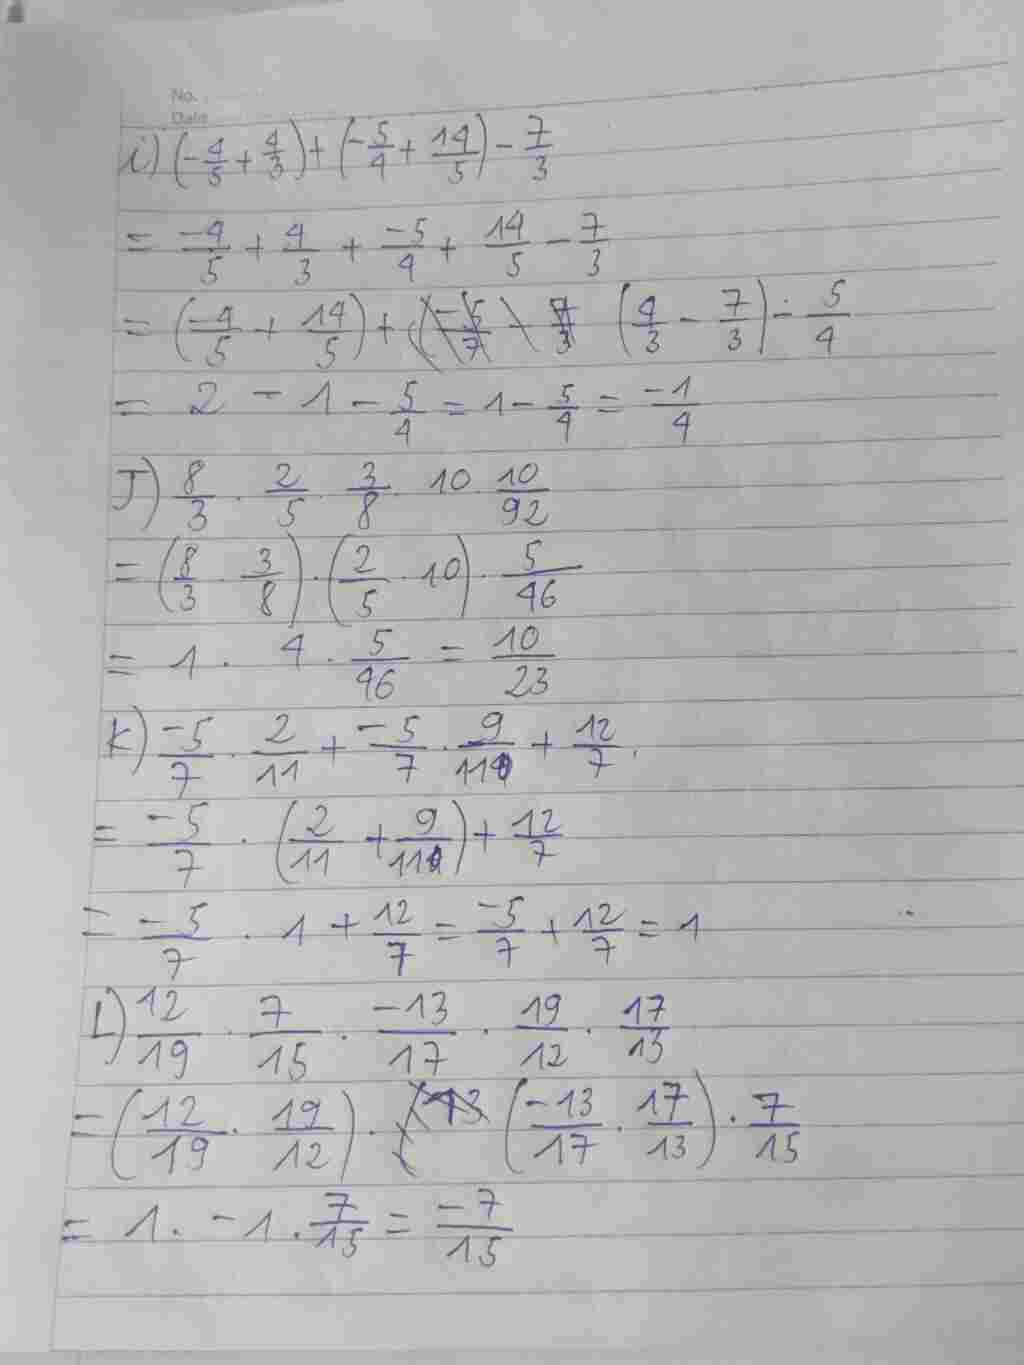 No.
Date
i) (-4/5 + 4/3) + (-5/4 + 14/5) - 7/3
= -4/5 + 4/3 + -5/4 + 14/5 - 7/3
= (-4/5 + 14/5) + (4/3 - 7/3) - 5/4
= 2 - 1 - 5/4 = 1 - 5/4 = -1/4
J) 8/3 . 2/5 . 3/8 . 10 . 10/92
= (8/3 . 3/8) . (2/5 . 10) . 5/46
= 1 . 4 . 5/46 = 10/23
K) -5/7 . 2/11 + -5/7 . 9/11 + 12/7 .
= -5/7 . (2/11 + 9/11) + 12/7
= -5/7 . 1 + 12/7 = -5/7 + 12/7 = 1
L) 12/19 . 7/15 . -13/17 . 19/12 . 17/13
= (12/19 . 19/12) . (-13/17 . 17/13) . 7/15
= 1 . -1 . 7/15 = -7/15